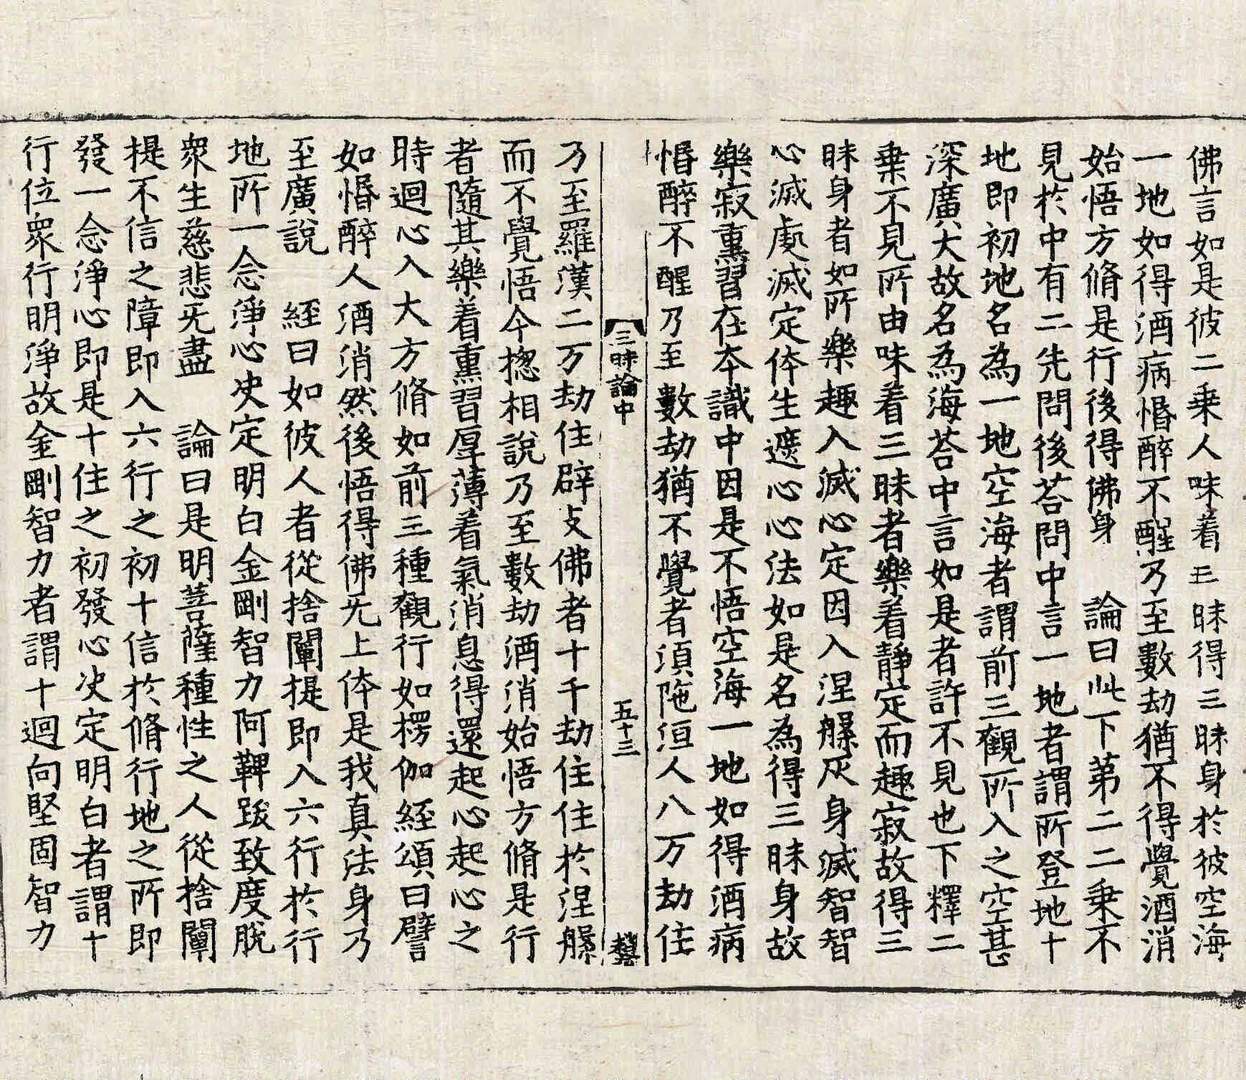 佛言如是彼二乗人味着三昧得三昧身於彼空海
一地如得酒病惛醉不醒乃至數劫猶不得覺酒消
始悟方脩是行後得佛身　論曰此下第二二乗不
見於中有二先問後荅問中言一地者謂所登地十
地即初地名為一地空海者謂前三觀所入之空甚
深廣大故名為海荅中言如是者許不見也下釋二
乗不見所由味着三昧者樂着静定而趣寂故得三
昧身者如所樂趣入滅心定因入涅槃灰身滅智智
心滅處滅定体生遮心心法如是名為得三昧身故
樂寂熏習在本識中因是不悟空海一地如得酒病
惛醉不醒乃至數劫猶不覺者湏陁洹人八万劫住
三昧論中　五十三
乃至羅漢二万劫住辟支佛者十千劫住住於涅槃
而不覺悟今捴相說乃至數劫酒消始悟方脩是行
者隨其樂着熏習厚薄着氣消息得還起心起心之
時迴心入大方脩如前三種觀行如楞伽經頌曰譬
如惛醉人酒消然後悟得佛无上体是我真法身乃
至廣說　經曰如彼人者從捨闡提即入六行於行
地所一念淨心决定明白金剛智力阿鞞跋致度脫
衆生慈悲无盡　論曰是明菩薩種性之人從捨闡
提不信之障即入六行之初十信於脩行地之所即
發一念淨心即是十住之初發心决定明白者謂十
行位衆行明淨故金剛智力者謂十迴向堅固智力